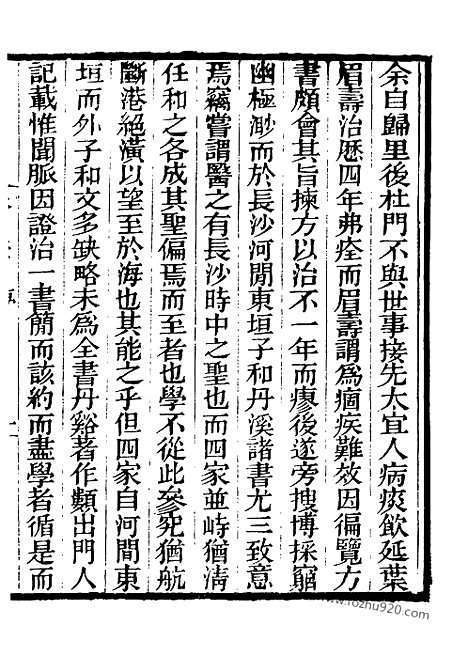 余自歸里後杜門不與世事接先大宜人病痰飲延葉
眉壽治歷四年弗痊而眉壽謂爲痼疾難效因徧覽方
書頗會其旨揀方以治不一年而瘳後遂旁搜博採窮
幽極渺而於長沙河閒東垣子和丹溪諸書尤三致意
焉竊嘗謂醫之有長沙時中之聖也而四家並峙猶清
任和之各成其聖偏焉而至者也學不從此參究猶航
斷港絕潢以望至於海也其能之乎但四家自河閒東
垣而外子和文多缺略未爲全書丹谿著作類出門人
記載惟聞脈因證治一書簡而該約而盡學者循是而
www.fozhu920.com